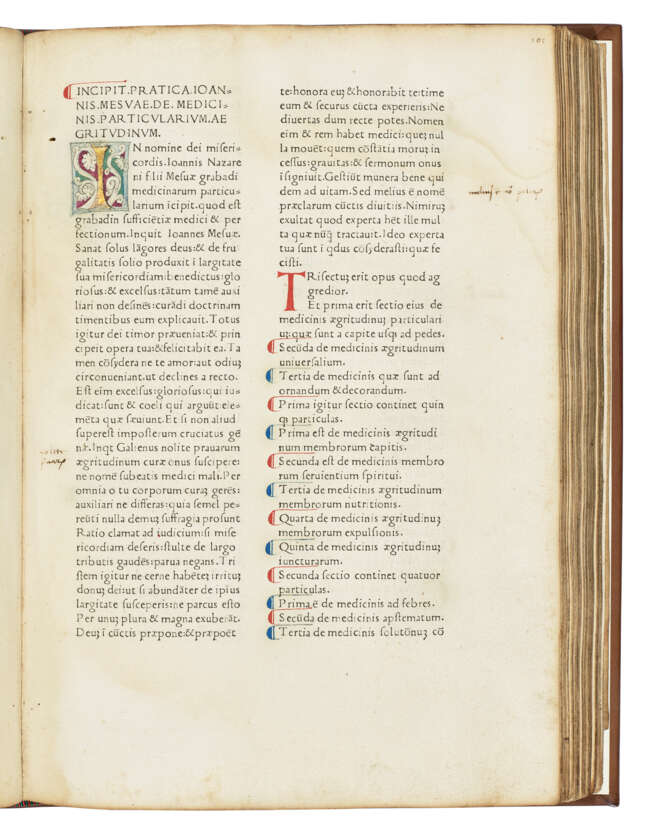 INCIPIT.PRATICA.IOAN-
NIS.MESVAE.DE.MEDICI-
NIS.PARTICVLARIVM.AE
GRITVDINVM.
IN nomine dei miseri-
cordis.Ioannis Nazare
ni filii Mesuæ grabadi
medicinarum particu-
larium icipit.quod est
grabadin sufficiētiæ medici & per
fectionum.Inquit Ioannes Mesuæ.
Sanat solus lāgores deus:& de fru
galitatis solio produxit i largitate
sua misericordiam:benedictus:glo
riosus:& excelsus:tātum tamē auxi
liari non desinēs:curādi doctrinam
timentibus eum explicauit.Totus
igitur dei timor præueniat:& prin
cipeit opera tua:&felicitabit ea.Ta
men cōsydera ne te amor:aut odiuȝ
circonueniant:ut declines a recto.
Est eīm excelsus:gloriosus:qui iu-
dicat:sunt & coeli qui arguūt:ele-
mēta quæ sæuiunt.Et si non aliud
superest imposterum cruciatus gē
Inqt Galienus nolite prauarum
ægritudinum curæ onus suscipere:
ne nomē subeatis medici mali.Per
omnia o tu corporum curaȝ gerēs:
auxiliari ne differas:quia semel pe-
reūti nulla demuȝ suffragia prosunt
Ratio clamat ad iudicium:si mise
ricordiam deseris:stulte de largo
tributis gaudēs:parua negans.Tri
stem igitur ne cerne habēteȝ:irrituȝ
donuȝ dei:ut si abundāter de ipius
largitate susceperis:ne parcus esto
Per unuȝ plura & magna exuberāt.
Deuȝ i cūctis præpone:&præpoēt
te:honora euȝ &honorabit te:time
eum & securus cūcta experieris:Ne
diuertas dum recte potes.Nomen
eim & rem habet medici:queȝ nul
la mouēt:quem cōstātia moruȝ in
cessus:grauitas:& sermonum onus
isigniuit.Gestiūt munera bene qui
dem ad uitam.Sed melius ē nomē
præclarum cūctis diuitiis.Nimiruȝ
exultat quod experta hēt ille mul
ta quæ nūq̄ tractauit.Ideo experta
tua sunt i qdus cōsyderasti:quæ fe
cisti.
TRisectuȝ erit opus quod ag
gredior.
Et prima erit sectio eius de
medicinis ægritudinuȝ particulari
uȝ:quæ sunt a capite usqȝ ad pedes.
Secūda de medicinis ægritudinum
uniuersalium.
Tertia de medicinis quæ sunt ad
ornandum &decorandum.
Prima igitur sectio continet quin
qȝ particulas.
Prima est de medicinis ægritudi
num membrorum capitis.
Secunda est de medicinis membro
rum seruientium spiritui.
Tertia de medicinis ægritudinum
membrorum nutritionis.
Quarta de medicinis ægritudinuȝ
membrorum expulsionis.
Quinta de medicinis ægritudinuȝ
iuncturarum.
Secunda sectio continet quatuor
particulas.
Prima ē de medicinis ad febres.
Secūda de medicinis apstematum.
Tertia de medicinis solutōnuȝ cō